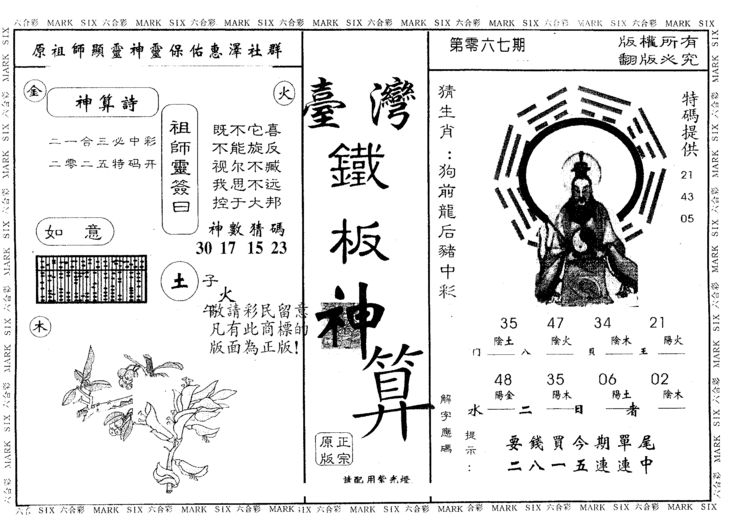 六合彩 MARK SIX 六合彩 MARK SIX 六合彩 MARK SIX 六合彩 MARK SIX 六合彩 MARK SIX 六合彩 MARK SIX 六合彩 MARK SIX 六合彩 MARK SIX
原祖師顯靈神靈保佑惠澤社群
金
火
神算詩
二一合三必中彩
二零二五特码开
祖師靈簽曰
既不它喜
不能旋反
视尔不臧
我思不远
控于大邦
神數猜碼
30 17 15 23
如意
土
子
火
午
敬請彩民留意
凡有此商標的
版面為正版!
木
臺灣
鐵板神算
正宗
原版
請配用紫光燈
第零六七期
版權所有
翻版必究
猜生肖:狗前龍后豬中彩
特碼提供
21
43
05
35 47 34 21
陰土 陰火 陰木 陽火
门 八 貝 王
48 35 06 02
陽金 陽木 陽土 陰木
水 二 日 者
解字應碼
提示:
要錢買今期單尾
二八一五連連中
六合彩 MARK SIX 六合彩 MARK SIX 六合彩 MARK SIX 六合彩 MARK SIX 六合彩 MARK SIX 六合彩 MARK SIX 六合彩 MARK SIX 六合彩 MARK SIX